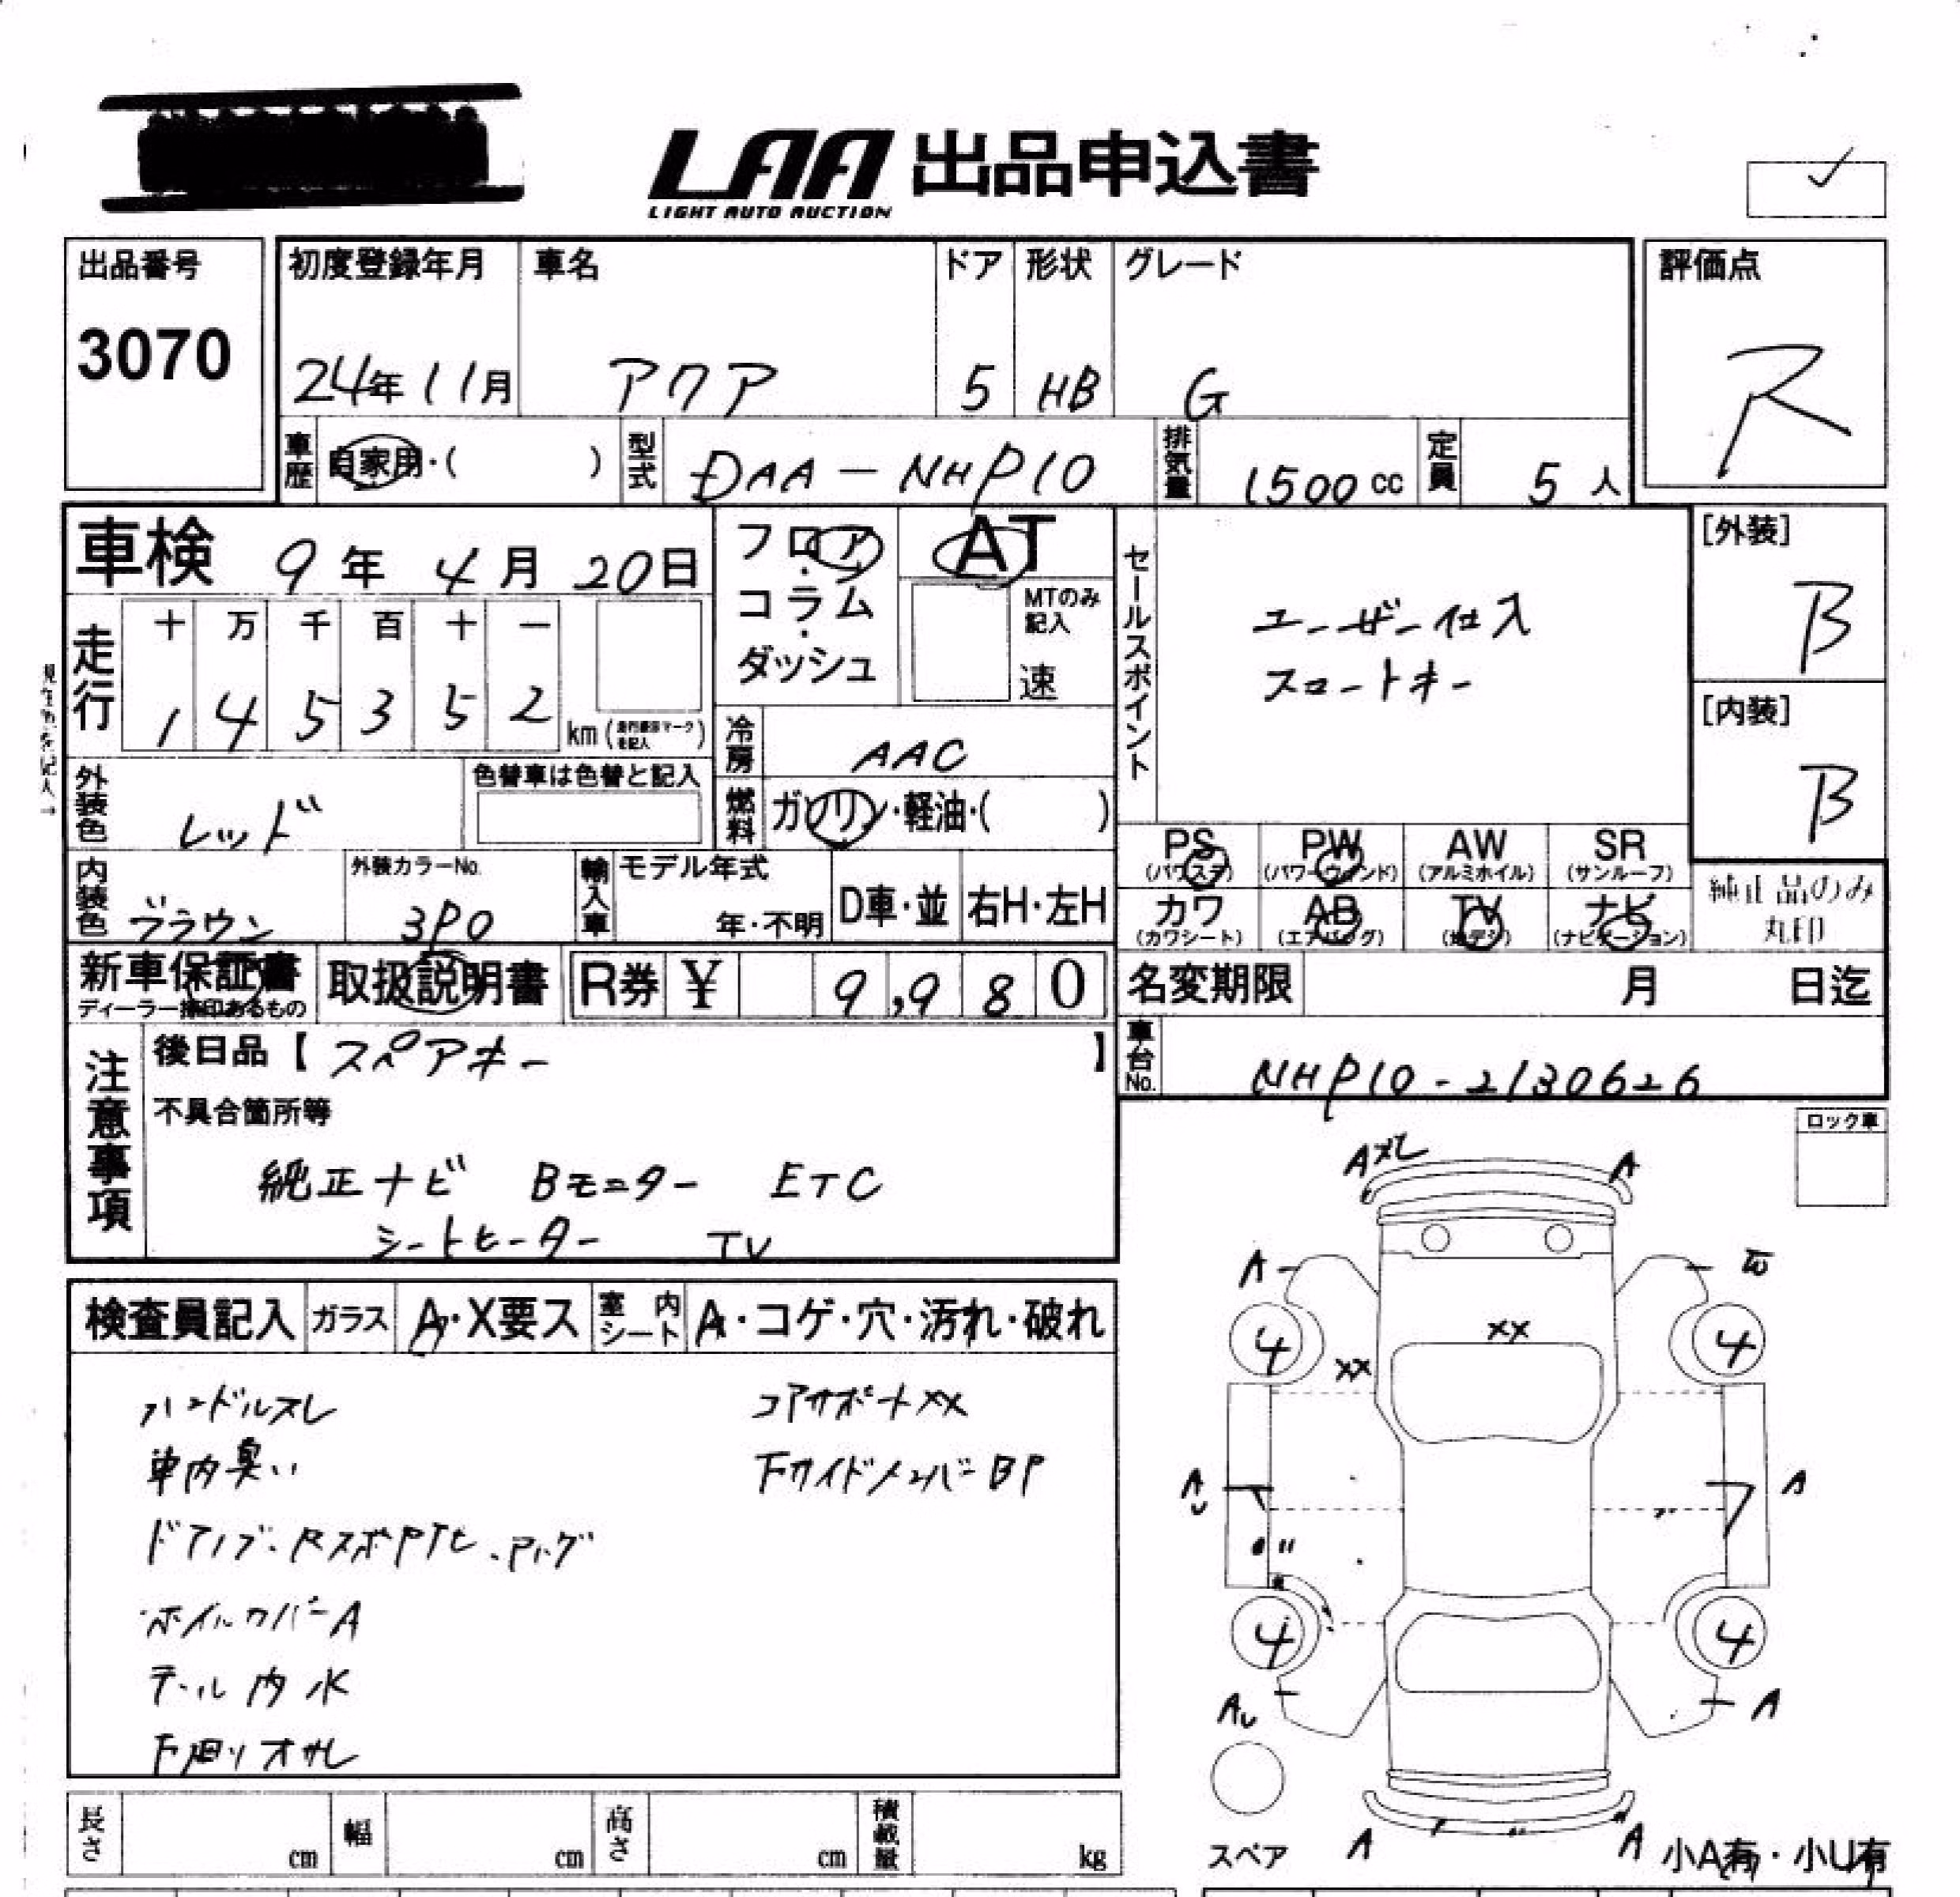 LAA 出品申込書
LIGHT AUTO AUCTION
出品番号
3070
初度登録年月
24年11月
車名
アクア
ドア
5
形状
HB
グレード
G
評価点
R
車歴 自家用・( )
型式 DAA-NHP10
排気量 1500cc
定員 5人
車検 9年4月20日
フロア・コラム・ダッシュ
AT
MTのみ記入
速
セールスポイント
ユーザー仕入
スマートキー
[外装]
B
[内装]
B
走行
十万千百十一
145352
km (走行表示マークを記入)
冷房 AAC
燃料 ガソリン・軽油・( )
外装色 レッド
色替車は色替と記入
内装色 ブラウン
外装カラーNo.
3P0
輸入車
モデル年式
年・不明
D車・並
右H・左H
PS (パワステ)
PW (パワーウィンド)
AW (アルミホイル)
SR (サンルーフ)
カワ (カワシート)
AB (エアバッグ)
TV (地デジ)
ナビ (ナビゲーション)
純正品のみ
丸印
新車保証書
ディーラー捺印あるもの
取扱説明書
R券 ¥ 9,980
名変期限 月 日迄
車台No. NHP10-2130626
注意事項
後日品【スペアキー】
不具合箇所等
純正ナビ Bモニター ETC
シートヒーター TV
ロック車
検査員記入
ガラス A・X要ス
室内シート A・コゲ・穴・汚れ・破れ
ハンドルスレ
車内臭い
ホイルカバーA
テール内水
下廻りオサレ
コアサポートXX
下サイドメンバーBP
A
A
A
XX
XX
4
4
A
U
A
4
4
AU
A
A
A
スペア
小A有・小U有
長さ cm
幅 cm
高さ cm
積載量 kg